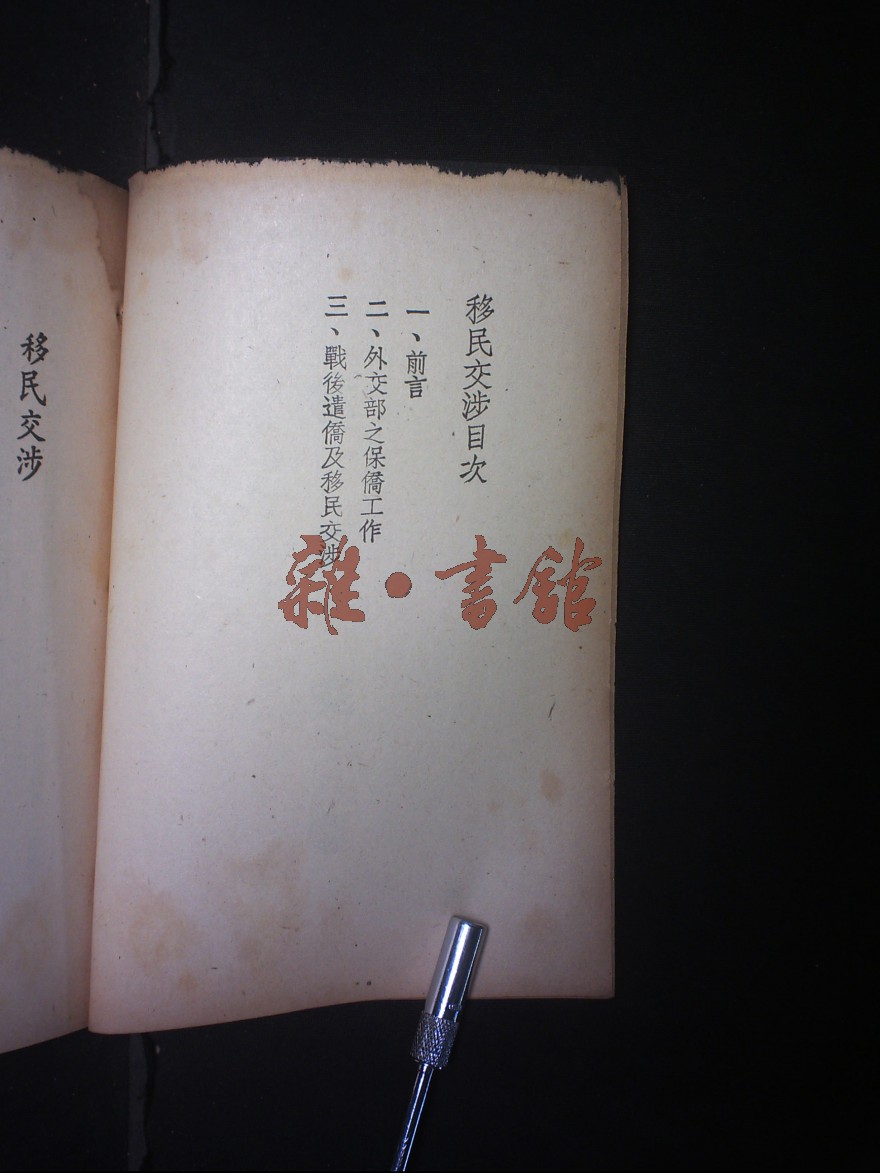 移民交涉目次
一、前言
二、外交部之保僑工作
三、戰後遣僑及移民交涉
移民交涉
雜·書館